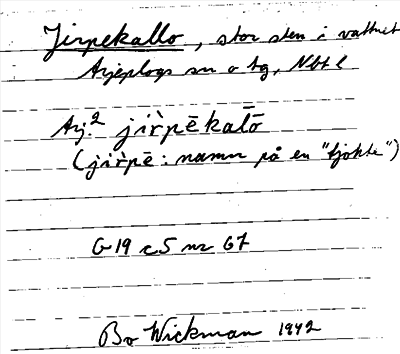 Jirpekallo, stor sten i vattnet
Arjeplogs sn o tg, Nbt l
Arj.2 jìrpēkaĺ̄ō
(jìrpē: namn på en "fjokte")
G 19 c 5 nr 67
Bo Wickman 1942